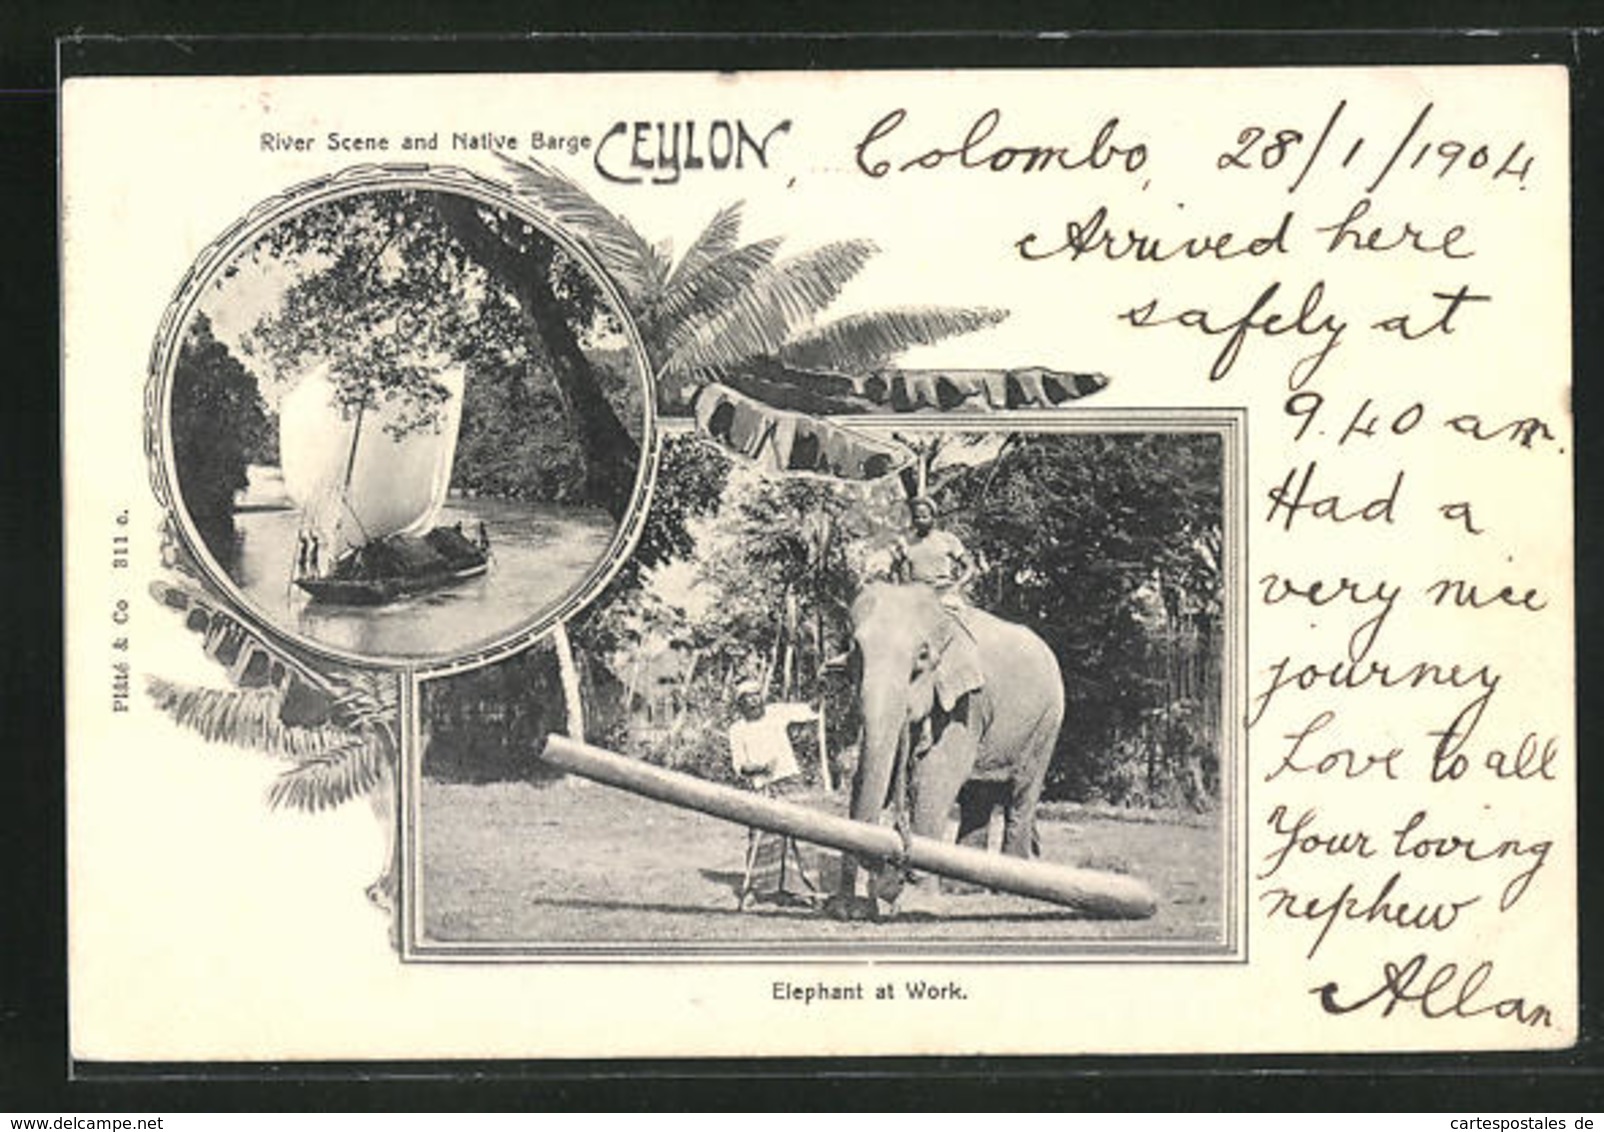 River Scene and Native Barge
CEYLON, Colombo, 28/1/1904.
Arrived here
safely at
9.40 am.
Had a
very nice
journey
Love to all
Your loving
nephew
Allan
Plâté & Co 311 c.
Elephant at Work.
www.delcampe.net
cartespostales de